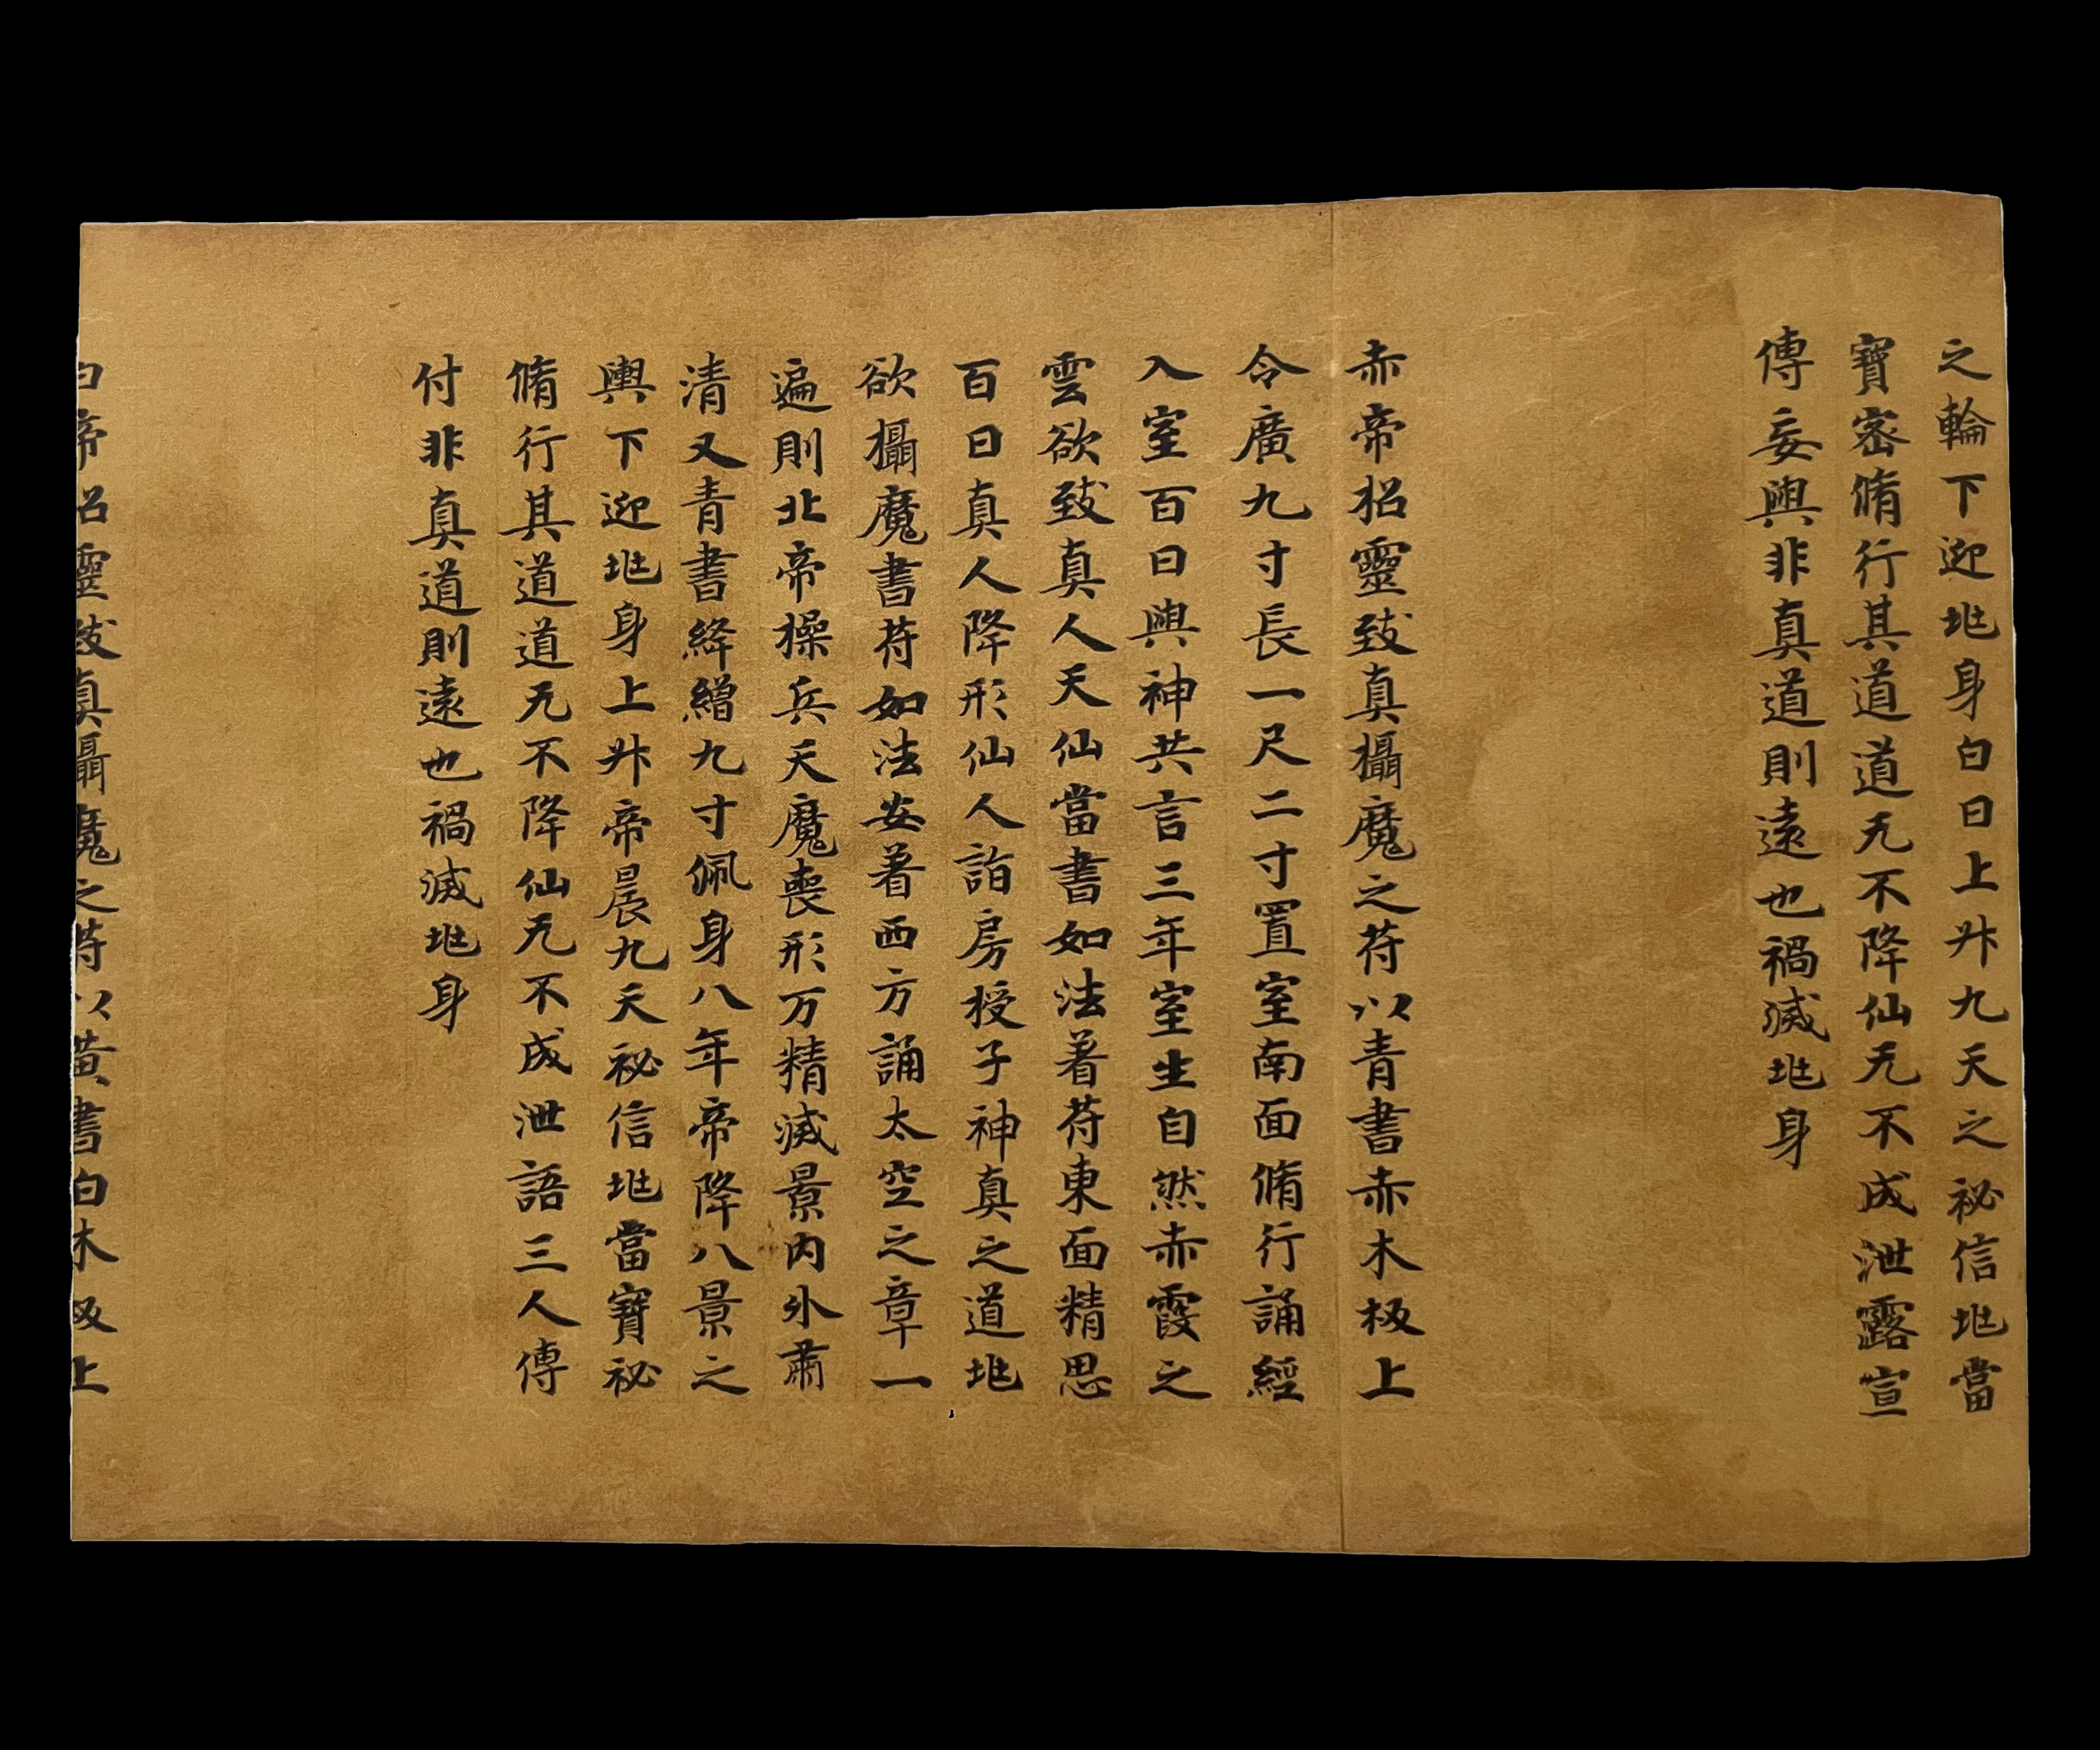 之輪下迎兆身白日上升九天之祕信兆當
寶密脩行其道道无不降仙无不成泄露宣
傳妄與非真道則遠也禍滅兆身
赤帝招靈致真攝魔之苻以青書赤木板上
令廣九寸長一尺二寸置室南面脩行誦經
入室百日與神共言三年室生自然赤霞之
雲欲致真人天仙當書如法著苻東面精思
百日真人降形仙人詣房授子神真之道兆
欲攝魔書苻如法安著西方誦太空之章一
遍則北帝操兵天魔喪形万精滅景內外肅
清又青書絳繒九寸佩身八年帝降八景之
輿下迎兆身上升帝晨九天祕信兆當寶祕
脩行其道道无不降仙无不成泄語三人傳
付非真道則遠也禍滅兆身
白帝招靈致真攝魔之苻以黃書白木板上